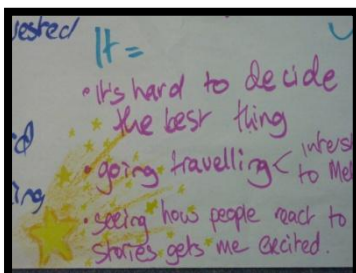 It =
• it's hard to decide
the best thing
• going travelling <
to
• seeing how people react to
stories gets me excited.